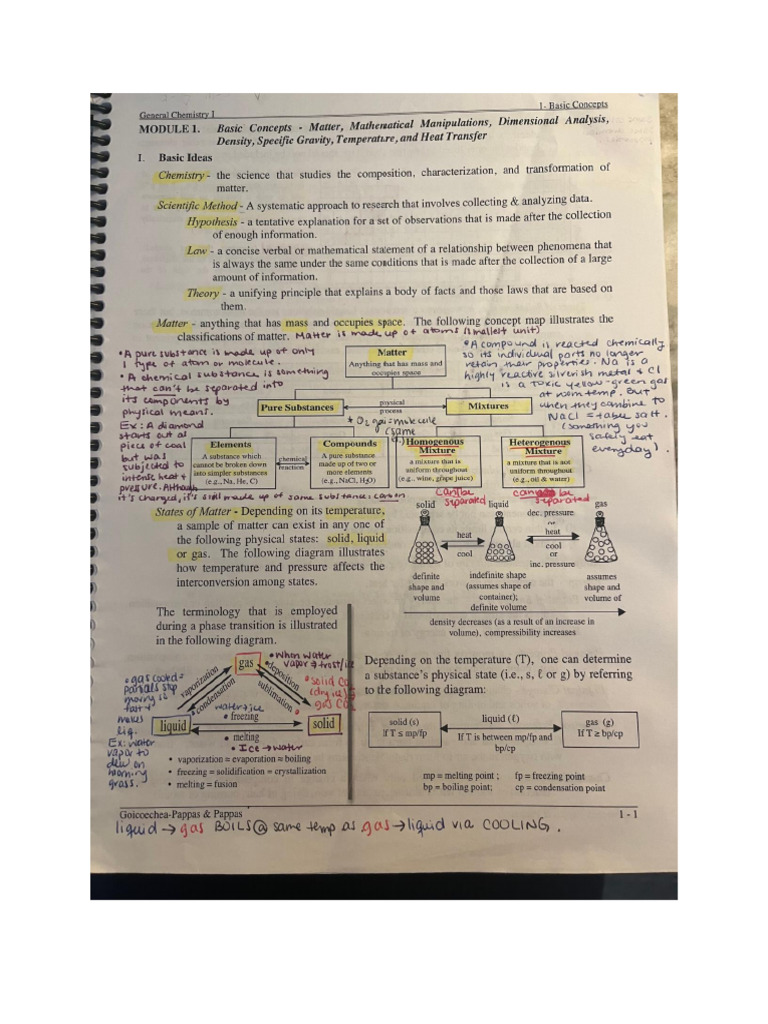 General Chemistry I
1- Basic Concepts
MODULE 1. Basic Concepts - Matter, Mathematical Manipulations, Dimensional Analysis,
Density, Specific Gravity, Temperature, and Heat Transfer
I. Basic Ideas
Chemistry - the science that studies the composition, characterization, and transformation of
matter.
Scientific Method - A systematic approach to research that involves collecting & analyzing data.
Hypothesis - a tentative explanation for a set of observations that is made after the collection
of enough information.
Law - a concise verbal or mathematical statement of a relationship between phenomena that
is always the same under the same conditions that is made after the collection of a large
amount of information.
Theory - a unifying principle that explains a body of facts and those laws that are based on
them.
Matter - anything that has mass and occupies space. The following concept map illustrates the
classifications of matter. Matter is made up of atoms (smallest unit)
• A pure substance is made up of only
1 type of atom or molecule.
• A chemical substance is something
that can't be separated into
its components by
physical means.
Ex: A diamond
starts out as
piece of coal
but was
subjected to
intense heat &
pressure. Although
it's charged, it's still made up of same substance: carbon
• A compound is reacted chemically
so its individual parts no longer
retain their properties. Na is a
highly reactive silverish metal & Cl
is a toxic yellow-green gas
at room temp. But
when they combine to
NaCl = table salt.
(something you
safely eat
everyday).
Matter
Anything that has mass and
occupies space
Pure Substances
physical
process
Mixtures
* O₂ gas = molecule
(same
Elements
A substance which
cannot be broken down
into simpler substances
(e.g., Na, He, C)
chemical
reaction
Compounds
A pure substance
made up of two or
more elements
(e.g., NaCl, H₂O)
Homogenous
Mixture
a mixture that is
uniform throughout
(e.g., wine, grape juice)
Heterogenous
Mixture
a mixture that is not
uniform throughout
(e.g., oil & water)
can be
separated
be
separated
States of Matter - Depending on its temperature,
a sample of matter can exist in any one of
the following physical states: solid, liquid
or gas. The following diagram illustrates
how temperature and pressure affects the
interconversion among states.
solid
liquid
gas
dec. pressure
or
heat
heat
cool
cool
or
inc. pressure
definite
shape and
volume
indefinite shape
(assumes shape of
container);
definite volume
assumes
shape and
volume of
density decreases (as a result of an increase in
volume), compressibility increases
The terminology that is employed
during a phase transition is illustrated
in the following diagram.
gas
• When water
vapor → frost/ice
vaporization
condensation
deposition
sublimation
• solid CO₂
(dry ice) →
gas CO₂
• gas cooled =
partials stop
moving so
fast &
makes
liq.
Ex: water
vapor to
dew on
morning
grass.
water → ice
• freezing
liquid
solid
• melting
• Ice → water
• vaporization = evaporation = boiling
• freezing = solidification = crystallization
• melting = fusion
Depending on the temperature (T), one can determine
a substance's physical state (i.e., s, ℓ or g) by referring
to the following diagram:
solid (s)
If T ≤ mp/fp
liquid (ℓ)
If T is between mp/fp and
bp/cp
gas (g)
If T ≥ bp/cp
mp = melting point ; fp = freezing point
bp = boiling point; cp = condensation point
Goicoechea-Pappas & Pappas
1 - 1
liquid → gas BOILS @ same temp as gas → liquid via COOLING.